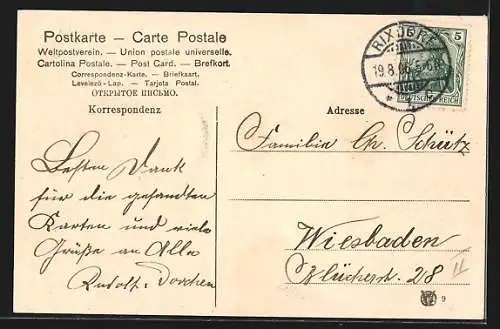 Postkarte – Carte Postale
Weltpostverein. – Union postale universelle.
Cartolina Postale. – Post Card. – Brefkort.
Correspondenz-Karte. – Briefkaart.
Levelező-Lap. – Tarjeta Postal.
ОТКРЫТОЕ ПИСЬМО.
Korrespondenz
Adresse
RIXDORF
19.8.
5
DEUTSCHES REICH
Besten Dank
für die gesandten
Karten und viele
Grüße an Alle
Rudolf.
Familie Ch. Schütz
Wiesbaden
Blücherst. 28
9